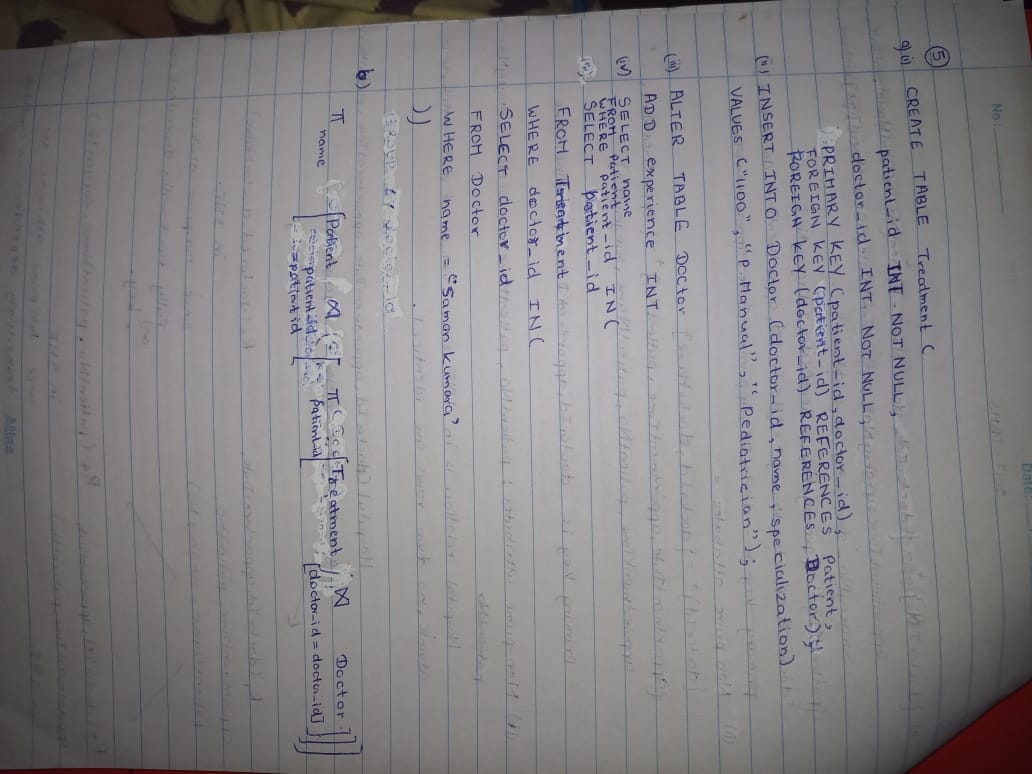 No:
Date:
5
a) i) CREATE TABLE Treatment (
patient_id INT NOT NULL,
doctor_id INT NOT NULL,
PRIMARY KEY (patient_id, doctor_id),
FOREIGN KEY (patient_id) REFERENCES Patient,
FOREIGN KEY (doctor_id) REFERENCES Doctor);
(ii) INSERT INTO Doctor (doctor_id, name, specialization)
VALUES ("1100", "P. Manual", "Pediatrician");
(iii) ALTER TABLE Doctor
ADD experience INT
(iv) SELECT name
FROM Patient
WHERE patient_id IN (
SELECT patient_id
FROM Treatment
WHERE doctor_id IN (
SELECT doctor_id
FROM Doctor
WHERE name = "Saman kumara"
))
b)
π name [Patient ⋈ π [Treatment ⋈ Doctor]
patient_id = patient_id patient_id [doctor_id = doctor_id]]]